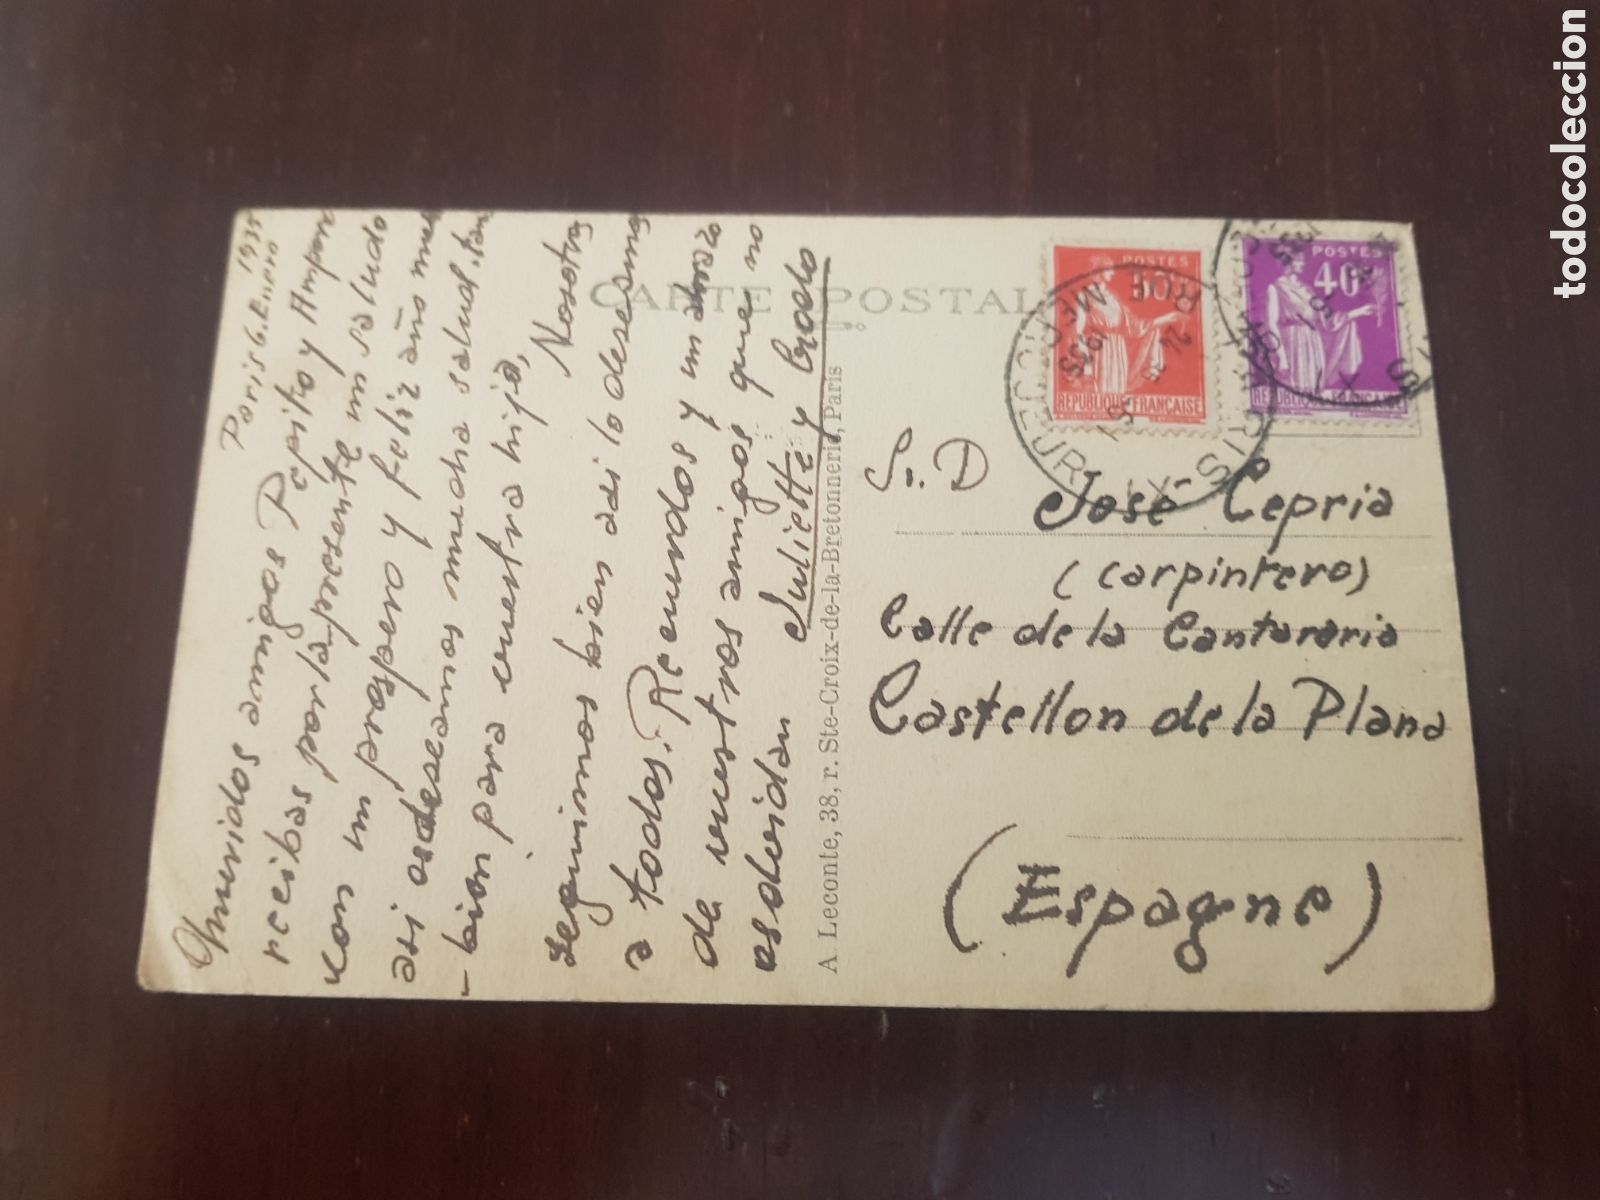 todocoleccion
Paris 6. Enero 1935
Queridos amigos Pepito y Ampar
recibas por la presente mi saludo
con un prospero y feliz año nue
asi os deseamos mucha salud. tan
-bien para vuestra hija,
Nosotros
seguimos bien asi lo desesmos
a todos. Recuerdos y un abrazo
de vuestros amigos que no
os olvidan Juliette y
CARTE POSTALE
A. Leconte, 38, r. Ste-Croix-de-la-Bretonnerie, Paris
POSTES
50
REPUBLIQUE FRANÇAISE
POSTES
40
REPUBLIQUE FRANÇAISE
1935
Sr. D
José Cepria
(carpintero)
Calle de la Cantararia
Castellon de la Plana
(Espagne)